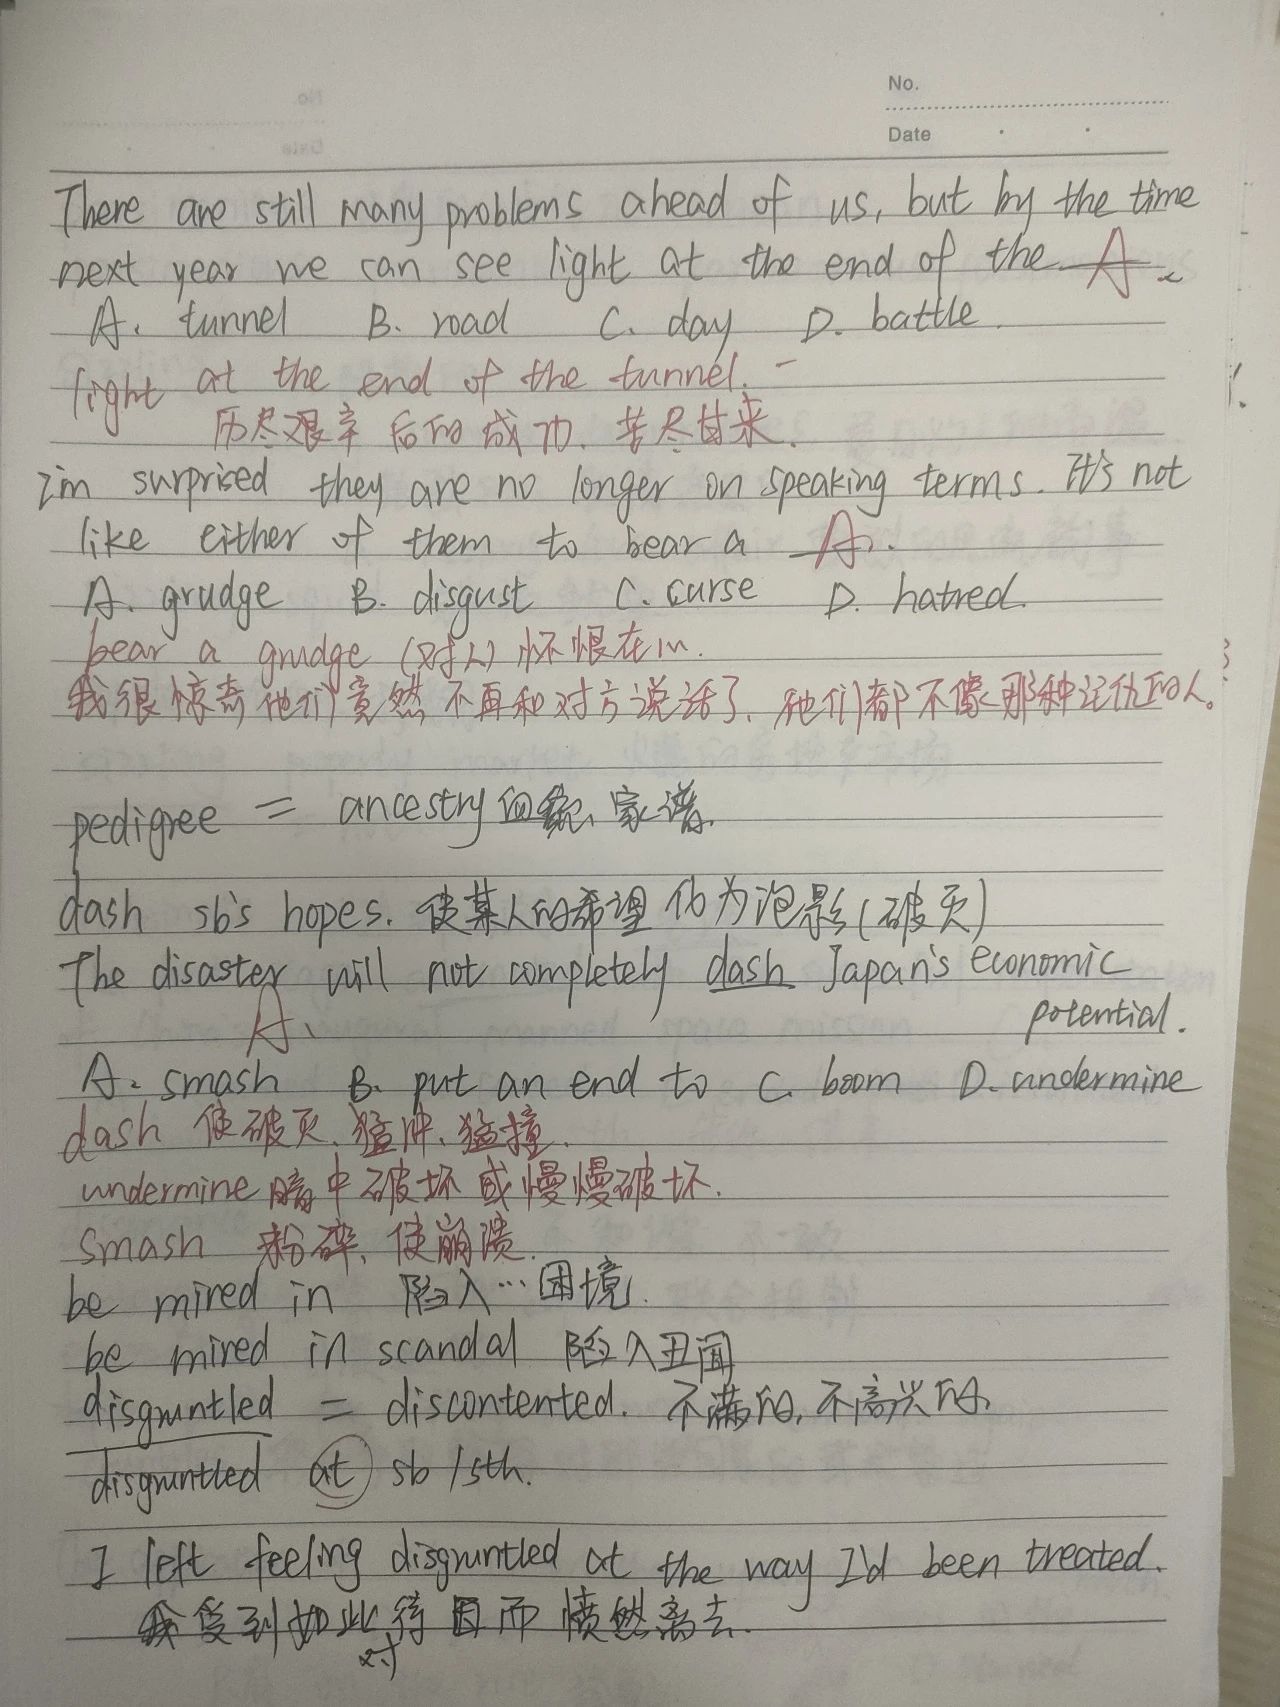 No.
Date
There are still many problems ahead of us, but by the time
next year we can see light at the end of the A.
A. tunnel B. road C. day D. battle.
light at the end of the tunnel.
历尽艰辛后的成功、苦尽甘来.
I'm surprised they are no longer on speaking terms. It's not
like either of them to bear a A.
A. grudge B. disgust C. curse D. hatred.
bear a grudge (对人) 怀恨在心.
我很惊奇他们竟然不再和对方说话了、他们都不像那种记仇的人。
pedigree = ancestry 血统、家谱.
dash sb's hopes. 使某人的希望化为泡影(破灭)
The disaster will not completely dash Japan's economic
potential.
A.
A. smash B. put an end to C. boom D. undermine
dash 使破灭、猛冲、猛撞.
undermine 暗中破坏或慢慢破坏.
smash 粉碎、使崩溃.
be mired in 陷入…困境.
be mired in scandal 陷入丑闻
disgruntled = discontented. 不满的, 不高兴的.
disgruntled at sb/sth.
I left feeling disgruntled at the way I'd been treated.
我受到如此对待因而愤然离去.